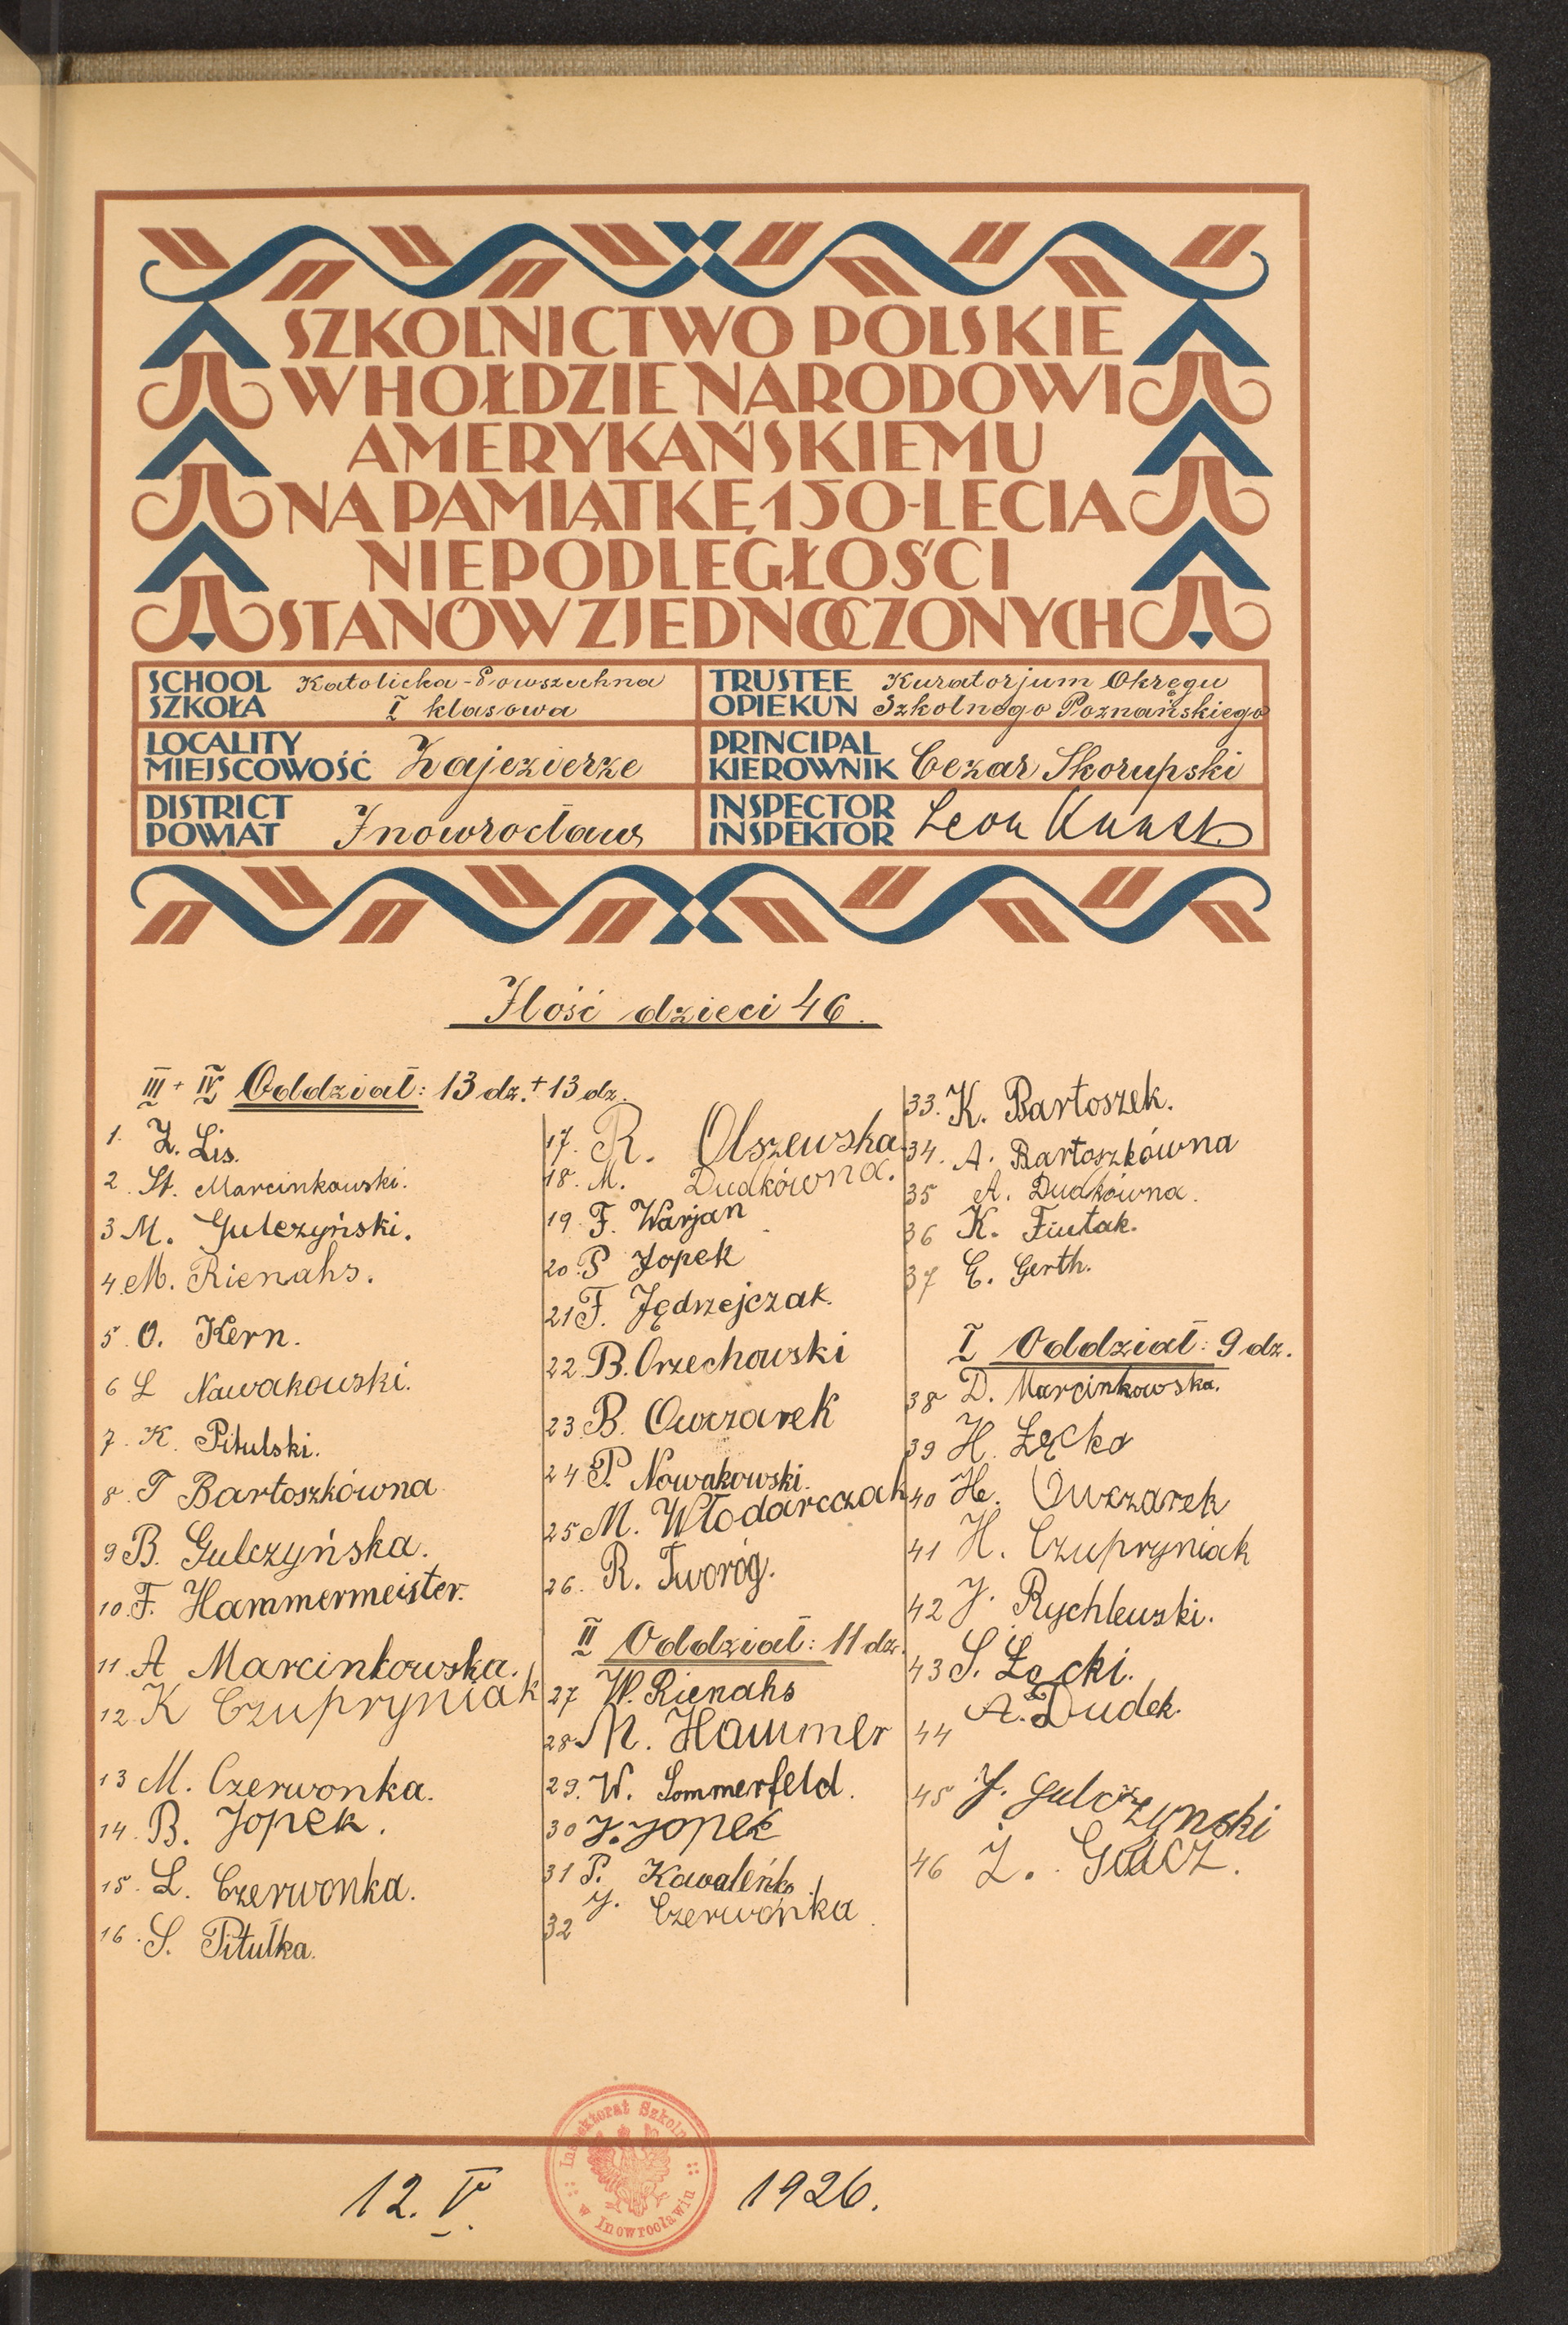 SZKOLNICTWO POLSKIE
W HOŁDZIE NARODOWI
AMERYKAŃSKIEMU
NA PAMIĄTKĘ 150-LECIA
NIEPODLEGŁOŚCI
STANÓW ZJEDNOCZONYCH
SCHOOL
SZKOŁA
Katolicka-Powszechna
I klasowa
TRUSTEE
OPIEKUN
Kuratorjum Okręgu
Szkolnego Poznańskiego
LOCALITY
MIEJSCOWOŚĆ
Zajezierze
PRINCIPAL
KIEROWNIK
Cezar Skorupski
DISTRICT
POWIAT
Inowrocław
INSPECTOR
INSPEKTOR
Leon
Ilość dzieci 46.
III + IV Oddział: 13 dz. + 13 dz.
1. Z. Lis.
2. St. Marcinkowski.
3 M. Gulczyński.
4. M. Rienahs.
5. O. Kern.
6 L Nawakowski.
7. K. Pitulski.
8. T Bartoszkówna
9 B. Gulczyńska.
10. F. Hammermeister.
11. A Marcinkowska.
12. K Czupryniak
13 M. Czerwonka.
14. B. Jopek.
15. L. Czerwonka.
16. S. Pitułka.
17. R. Olszewska.
18. M. Dudkówna.
19. F. Warjan
20. P Jopek
21 F. Jędrzejczak.
22. B. Orzechowski
23. B. Owczarek
24. P. Nowakowski.
25 M. Włodarcczak
26. R. Tworóg.
II Oddział: 11 dz.
27 W. Rienahs
28 M. Hammer
29. W. Sommerfeld.
30 J. Jopek
31 P. Kowaleńko
32 J. Czerwonka.
33. K. Bartoszek.
34. A. Bartoszkówna
35 A. Dudkówna.
36 K. Fiutak.
37 E. Gerth.
I Oddział: 9 dz.
38 D. Marcinkowska.
39 H. Łęcka
40 He. Owczarek
41 H. Czupryniak
42 J. Rychlewski.
43 S. Łęcki.
44 A. Dudek.
45 J. Gulczynski
46 Z. Gącz.
Inspektorat Szkolny
w Inowrocławiu
12. V. 1926.